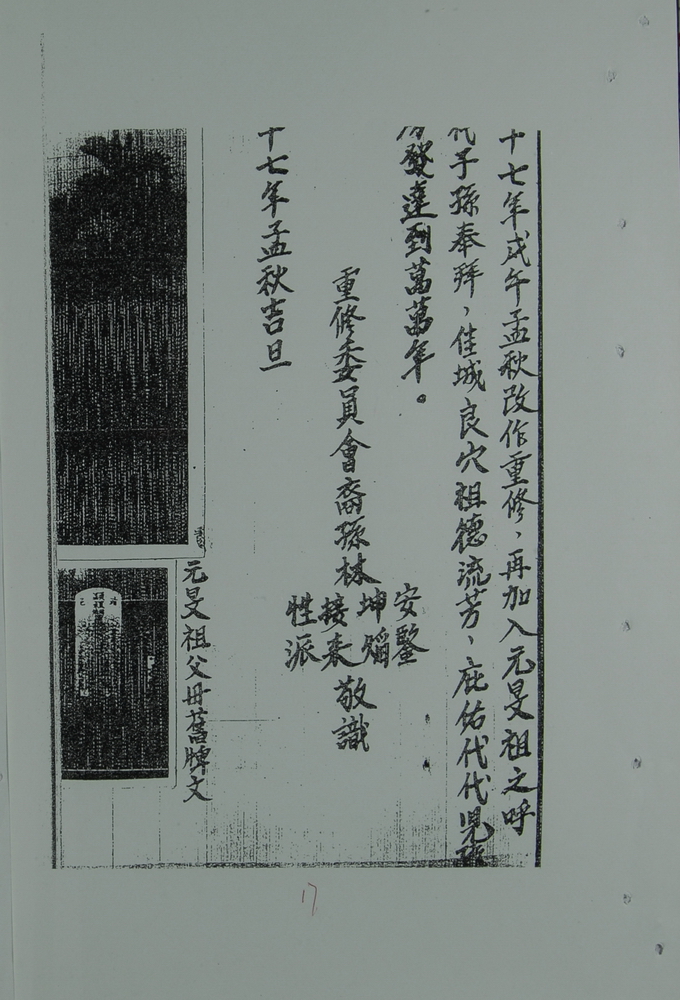 十七年戊午孟秋改作重修，再加入元旻祖之呼
代子孫奉拜，佳城良穴祖德流芳，庇佑代代兒孫
發達到萬萬年。
重修委員會裔孫林
安鑒
坤焰
接來
性派
敬識
十七年孟秋吉旦
元旻祖父母舊牌文
17